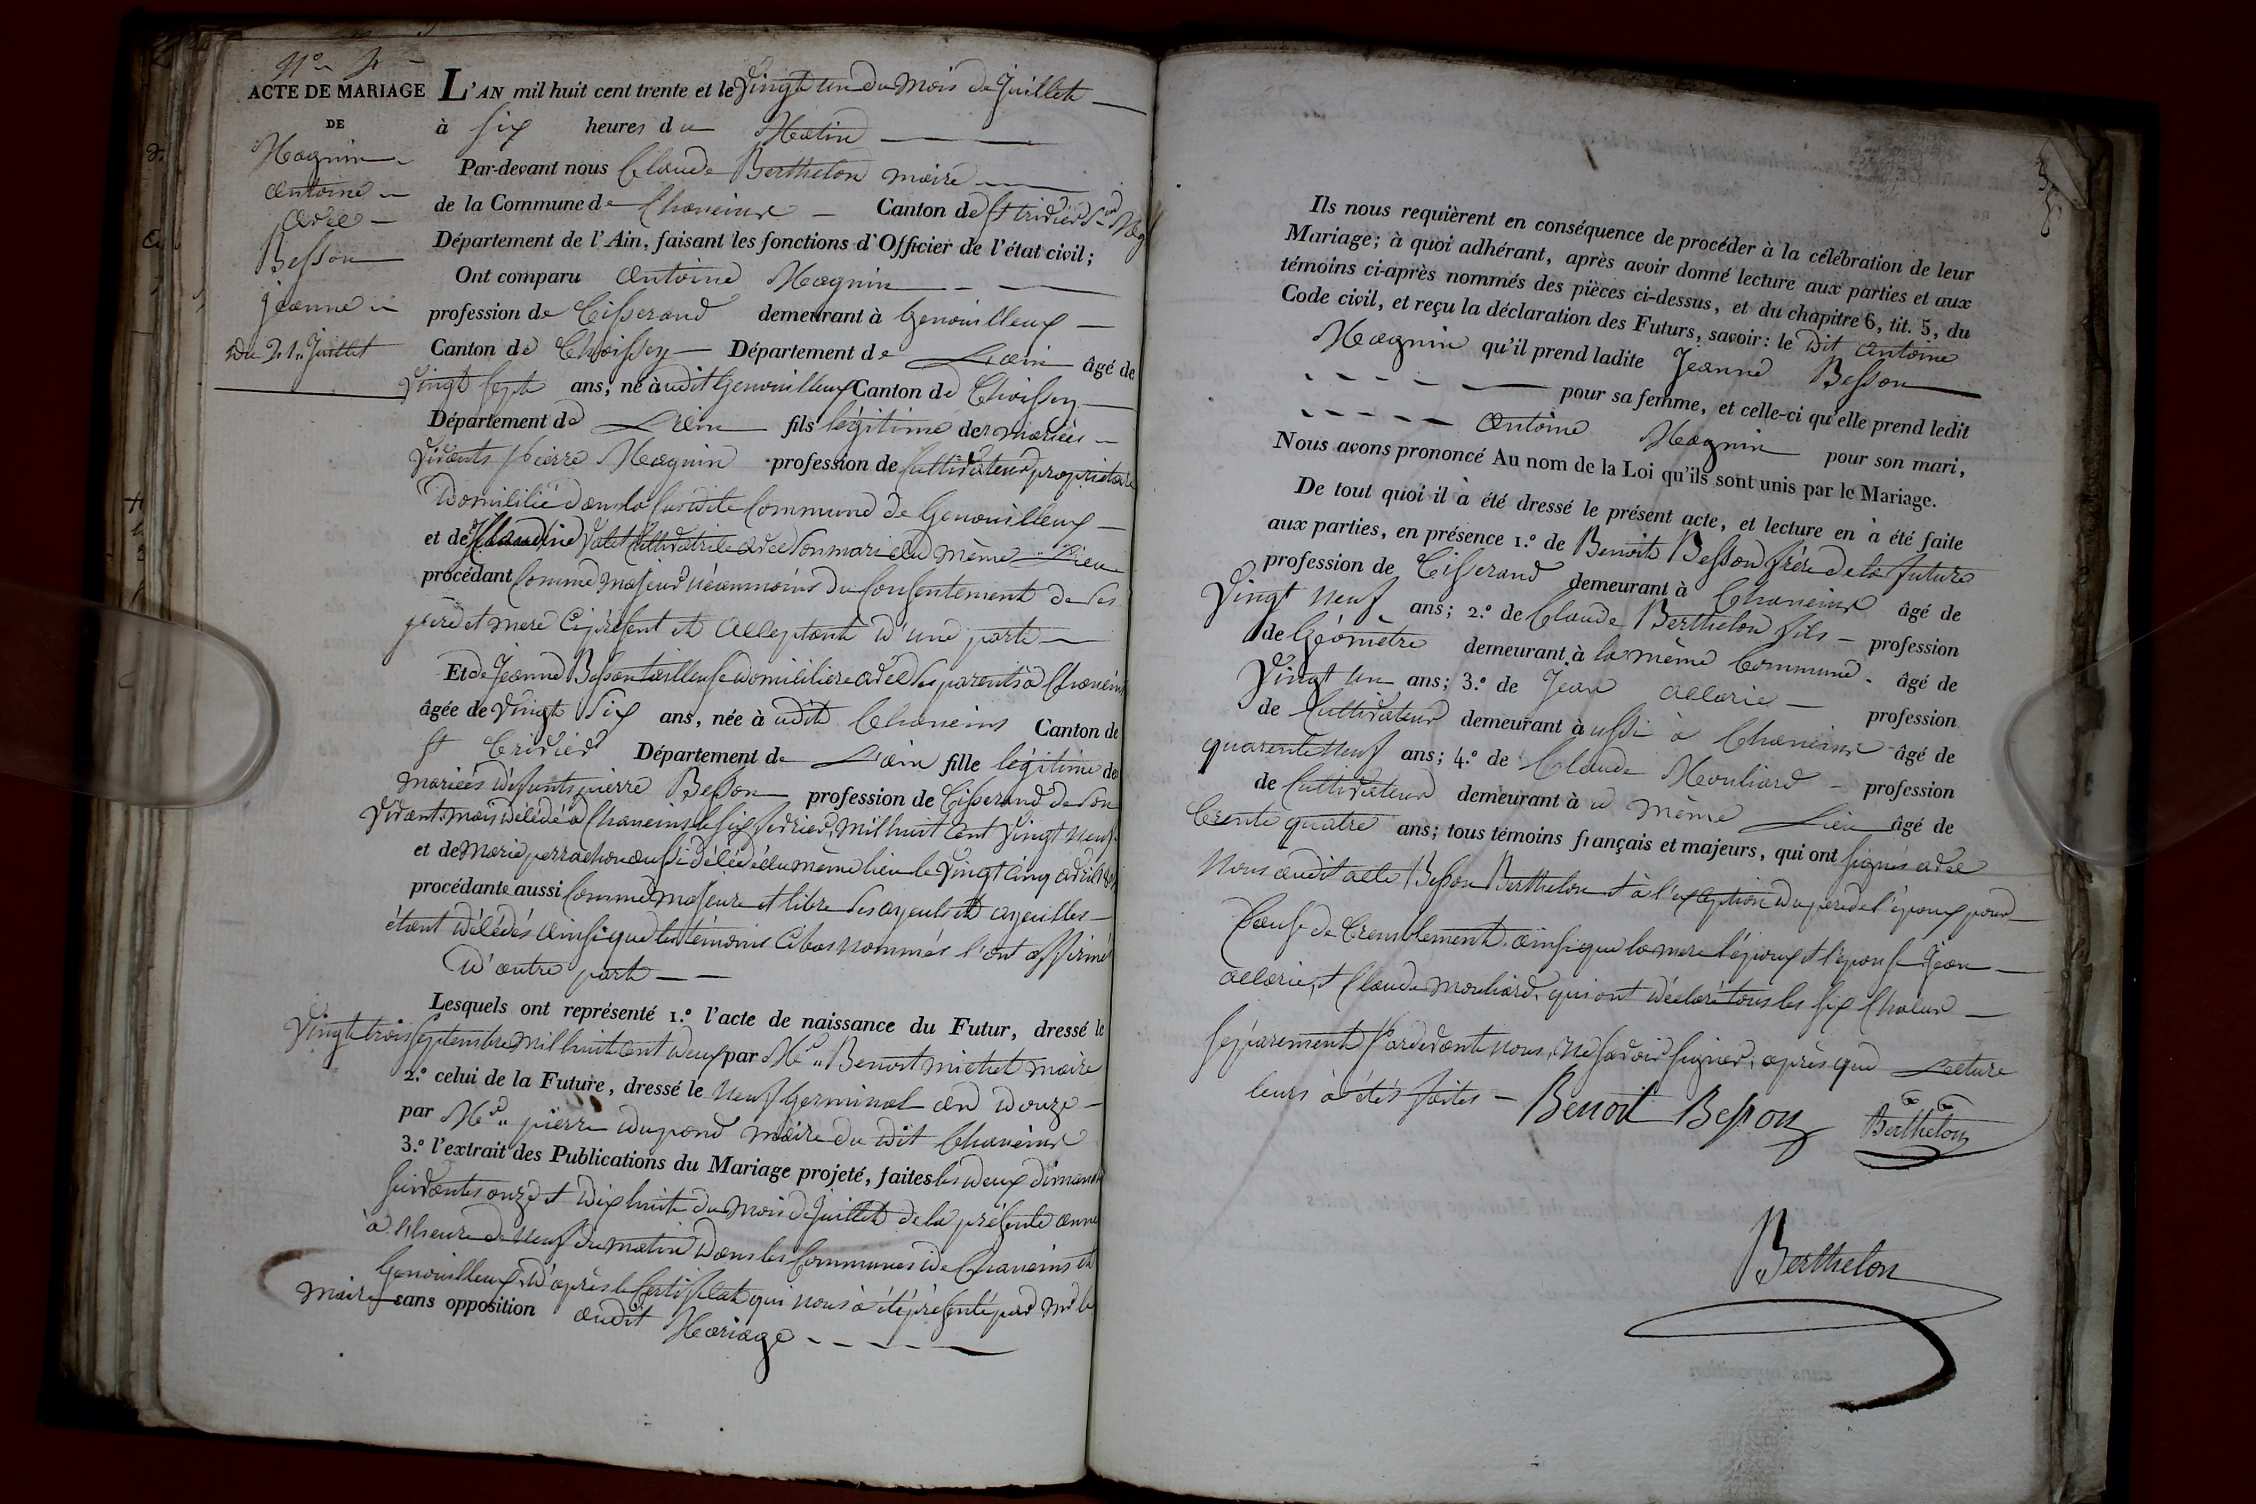 ACTE DE MARIAGE
DE
Magnin
antoine
avec
Besson
jeanne
du 21 Juillet
L'AN mil huit cent trente et le vingt un du mois de Juillet
à six heures du Matin
Par-devant nous Claude Berthelon maire
de la Commune de Chaneins Canton de St trivier
Département de l'Ain, faisant les fonctions d'Officier de l'état civil;
Ont comparu antoine Magnin
profession de Tisserand demeurant à Genouilleux
Canton de Thoissey Département de Lain âgé de
vingt sept ans, né audit Genouilleux Canton de Thoissey
Département de Lain fils légitime des mariés
vivants pierre Magnin profession de Cultivateur propriétaire
domicilié dans la susdite Commune de Genouilleux
et de Claudine Valet Cultivatrice avec son mari au même Lieu
procédant Comme majeur néanmoins du Consentement de ses
père et mere Ci présent et acceptant d'une part
Et de Jeanne Besson tailleuse domiciliere avec ses parents à Chaneins
âgée de vingt six ans, née à udit Chaneins Canton de
St Trivier Département de Lain fille légitime des
mariées défunts pierre Besson profession de Tisserand de son
vivant mais décédé à Chaneins le six fevrier mil huit cent vingt neuf
et de Marie perrachon aussi décédée au même lieu le vingt cinq avril
procédante aussi Comme majeure et libre ses ayeuls et ayeulles
étant décédés ainsi que les témoins Cibas nommés l'ont affirmé
d'autre part
Lesquels ont représenté 1.º l'acte de naissance du Futur, dressé le
vingt trois septembre mil huit cent deux par Mr Benoit michel maire
2.º celui de la Future, dressé le neuf Germinal an douze
par Mr pierre dupond maire du dit Chaneins
3.º l'extrait des Publications du Mariage projeté, faites les deux dimanches
suivantes onze et dix huit du mois de Juillet de la présente année
à l'heure de neuf du matin dans les Communes de Chaneins et
Genouilleux d'après le Certificat qui nous à été présenté par Mr le
maire sans opposition audit Mariage
Ils nous requièrent en conséquence de procéder à la célébration de leur
Mariage; à quoi adhérant, après avoir donné lecture aux parties et aux
témoins ci-après nommés des pièces ci-dessus, et du chapitre 6, tit. 5, du
Code civil, et reçu la déclaration des Futurs, savoir: le dit antoine
Magnin qu'il prend ladite Jeanne Besson
pour sa femme, et celle-ci qu'elle prend ledit
antoine Magnin pour son mari,
Nous avons prononcé Au nom de la Loi qu'ils sont unis par le Mariage.
De tout quoi il à été dressé le présent acte, et lecture en à été faite
aux parties, en présence 1.º de Benoit Besson frère de la future
profession de Tisserand demeurant à Chaneins âgé de
vingt neuf ans; 2.º de Claude Berthelon fils profession
de Géomètre demeurant à la même Commune âgé de
vingt un ans; 3.º de Jean allarie profession
de Cultivateur demeurant à ussi à Chaneins âgé de
quarente neuf ans; 4.º de Claude Mouliard profession
de Cultivateur demeurant à u même Lieu âgé de
trente quatre ans; tous témoins français et majeurs, qui ont signés avec
nous audit acte Besson Berthelon et à l'exception du pere de l'époux pour
Cause de tremblement, ainsi que la mere l'époux et l'épouse Jean
allarie, et Claude Mouliard, qui ont déclaré tous les six Chacun
séparement Pardevant nous, ne savoir signer, après que Lecture
leurs à étés faites
Benoit Besson
Berthelon
Berthelon